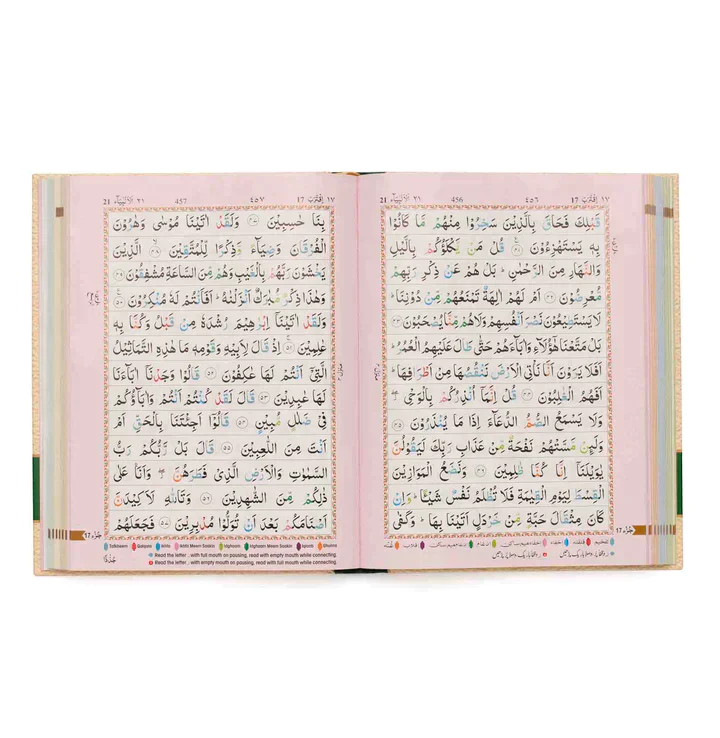 ٢١ الانبياء 21 456 ٤٥٦ 17 اقترب ١٧
قَبْلِكَ فَحَاقَ بِالَّذِيْنَ سَخِرُوْا مِنْهُمْ مَّا كَانُوْا
بِهٖ يَسْتَهْزِءُوْنَ ﴿٤١﴾ قُلْ مَنْ يَّكْلَؤُكُمْ بِالَّيْلِ
وَالنَّهَارِ مِنَ الرَّحْمٰنِ ؕ بَلْ هُمْ عَنْ ذِكْرِ رَبِّهِمْ
مُّعْرِضُوْنَ ﴿٤٢﴾ اَمْ لَهُمْ اٰلِهَةٌ تَمْنَعُهُمْ مِّنْ دُوْنِنَا ؕ
لَا يَسْتَطِيْعُوْنَ نَصْرَ اَنْفُسِهِمْ وَلَا هُمْ مِّنَّا يُصْحَبُوْنَ ﴿٤٣﴾
بَلْ مَتَّعْنَا هٰٓؤُلَآءِ وَاٰبَآءَهُمْ حَتّٰى طَالَ عَلَيْهِمُ الْعُمُرُ ؕ
اَفَلَا يَرَوْنَ اَنَّا نَاْتِى الْاَرْضَ نَنْقُصُهَا مِنْ اَطْرَافِهَا ؕ
اَفَهُمُ الْغٰلِبُوْنَ ﴿٤٤﴾ قُلْ اِنَّمَآ اُنْذِرُكُمْ بِالْوَحْىِ ۖ
وَلَا يَسْمَعُ الصُّمُّ الدُّعَآءَ اِذَا مَا يُنْذَرُوْنَ ﴿٤٥﴾
وَلَئِنْ مَّسَّتْهُمْ نَفْحَةٌ مِّنْ عَذَابِ رَبِّكَ لَيَقُوْلُنَّ
يٰوَيْلَنَآ اِنَّا كُنَّا ظٰلِمِيْنَ ﴿٤٦﴾ وَنَضَعُ الْمَوَازِيْنَ
الْقِسْطَ لِيَوْمِ الْقِيٰمَةِ فَلَا تُظْلَمُ نَفْسٌ شَيْـًٔا ؕ وَاِنْ
كَانَ مِثْقَالَ حَبَّةٍ مِّنْ خَرْدَلٍ اَتَيْنَا بِهَا ؕ وَكَفٰى
جزء 17
٢١ الانبياء 21 457 ٤٥٧ 17 اقترب ١٧
بِنَا حٰسِبِيْنَ ﴿٤٧﴾ وَلَقَدْ اٰتَيْنَا مُوْسٰى وَهٰرُوْنَ
الْفُرْقَانَ وَضِيَآءً وَّذِكْرًا لِّلْمُتَّقِيْنَ ﴿٤٨﴾ الَّذِيْنَ
يَخْشَوْنَ رَبَّهُمْ بِالْغَيْبِ وَهُمْ مِّنَ السَّاعَةِ مُشْفِقُوْنَ ﴿٤٩﴾
وَهٰذَا ذِكْرٌ مُّبٰرَكٌ اَنْزَلْنٰهُ ؕ اَفَاَنْتُمْ لَهٗ مُنْكِرُوْنَ ﴿٥٠﴾
وَلَقَدْ اٰتَيْنَآ اِبْرٰهِيْمَ رُشْدَهٗ مِنْ قَبْلُ وَكُنَّا بِهٖ
عٰلِمِيْنَ ﴿٥١﴾ اِذْ قَالَ لِاَبِيْهِ وَقَوْمِهٖ مَا هٰذِهِ التَّمَاثِيْلُ
الَّتِىْٓ اَنْتُمْ لَهَا عٰكِفُوْنَ ﴿٥٢﴾ قَالُوْا وَجَدْنَآ اٰبَآءَنَا
لَهَا عٰبِدِيْنَ ﴿٥٣﴾ قَالَ لَقَدْ كُنْتُمْ اَنْتُمْ وَاٰبَآؤُكُمْ
فِىْ ضَلٰلٍ مُّبِيْنٍ ﴿٥٤﴾ قَالُوْٓا اَجِئْتَنَا بِالْحَقِّ اَمْ
اَنْتَ مِنَ اللّٰعِبِيْنَ ﴿٥٥﴾ قَالَ بَلْ رَّبُّكُمْ رَبُّ
السَّمٰوٰتِ وَالْاَرْضِ الَّذِىْ فَطَرَهُنَّ ۖ وَاَنَا عَلٰى
ذٰلِكُمْ مِّنَ الشّٰهِدِيْنَ ﴿٥٦﴾ وَتَاللّٰهِ لَاَكِيْدَنَّ
اَصْنَامَكُمْ بَعْدَ اَنْ تُوَلُّوْا مُدْبِرِيْنَ ﴿٥٧﴾ فَجَعَلَهُمْ
جزء 17
Idgham Meem Saakin Iqlab Ghunna
Read the letter with full mouth on pausing, empty mouth while connecting
Read the letter with empty mouth on pausing, read with full mouth while connecting